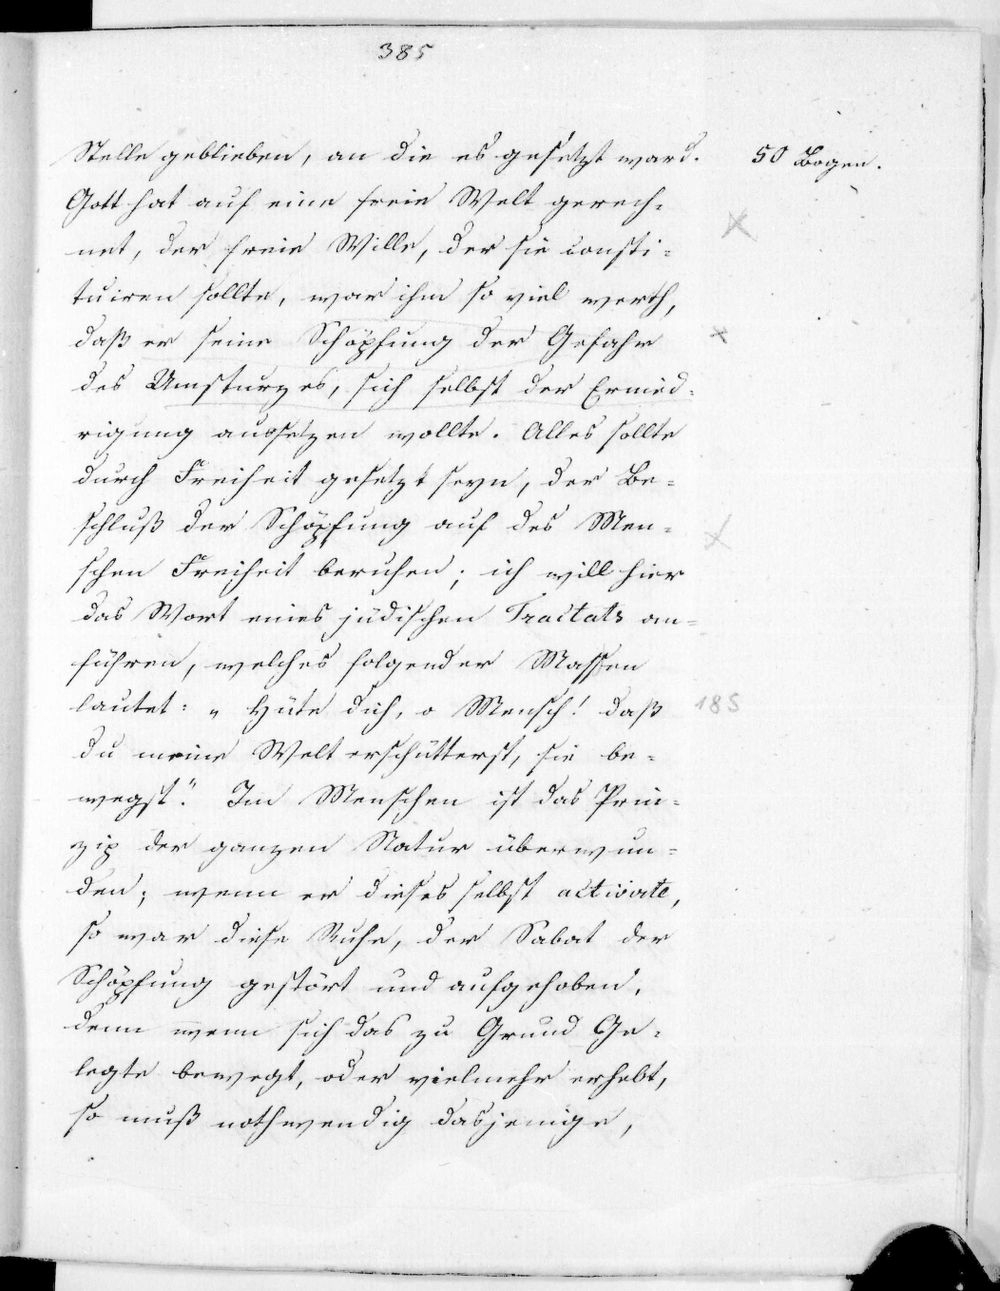 385
Stelle geblieben, an die es gesetzt ward.
50 Bogen.
Gott hat auf eine freie Welt gerech=
net, der freie Wille, der sie consti=
tuiren sollte, war ihm so viel werth,
daß er seine Schöpfung der Gefahr
des Umsturzes, sich selbst der Ernied=
rigung aussetzen wollte. Alles sollte
durch Freiheit gesetzt seyn, der Be=
schluß der Schöpfung auf des Men=
schen Freiheit beruhen; ich will hier
das Wort eines jüdischen Tractats an=
führen, welches folgender Massen
lautet: „Hüte dich, o Mensch! daß
185
du meine Welt erschütterst, sie be=
wegst." Im Menschen ist das Prin=
zip der ganzen Natur überwun=
den; wenn er dieses selbst activirte,
so war diese Ruhe, der Sabat der
Schöpfung gestört und aufgehoben,
denn wenn sich das zu Grund Ge=
legte bewegt, oder vielmehr erhebt,
so muß nothwendig dasjenige,